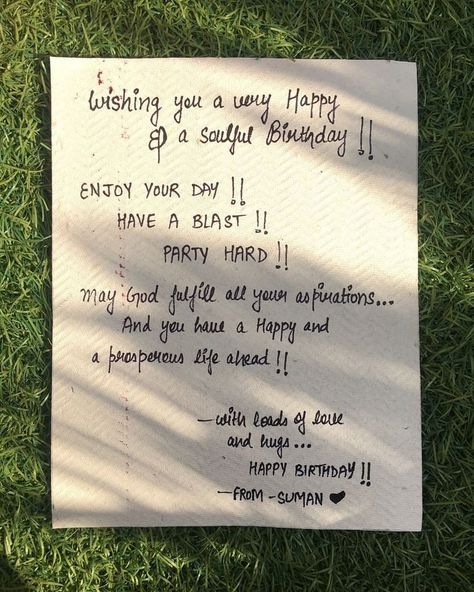 Wishing you a very Happy
& a soulful Birthday !!
ENJOY YOUR DAY !!
HAVE A BLAST !!
PARTY HARD !!
May God fulfill all your aspirations...
And you have a Happy and
a prosperous life ahead !!
- with loads of love
and hugs...
HAPPY BIRTHDAY !!
- FROM - SUMAN ♥